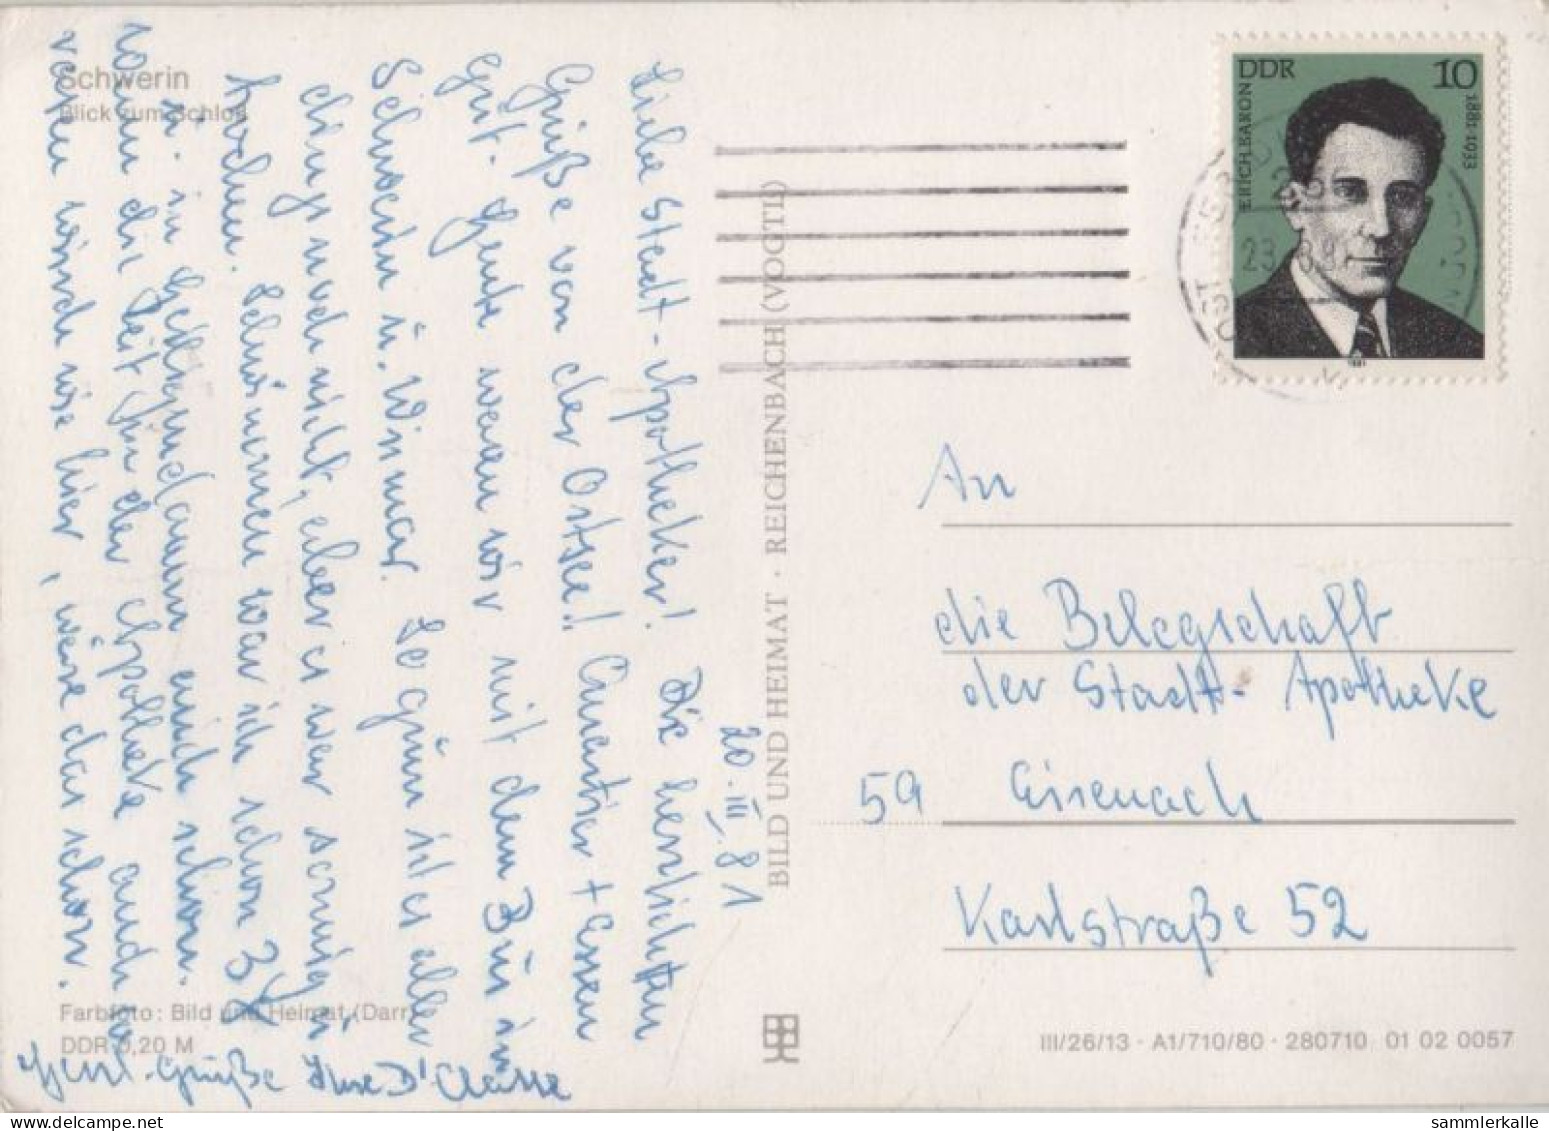 Schwerin
Blick zum Schloß
20.III.81
Liebe Stadt-Apotheker! Die herzlichsten
Grüße von der Ostsee!! + Essen
Gut. Heute waren wir mit dem Bus in
Schwerin u. Wismar. So grün ist es aller
dings noch nicht, aber es war sonnig u.
trocken. Schwimmen war ich schon 3 x
u. in auch schon.
Wenn die Zeit in der Apotheke auch so
wie hier, wäre das schon.
Herzl. Grüße Ilse
Farbfoto: Bild und Heimat (Darr)
DDR 0,20 M
BILD UND HEIMAT · REICHENBACH (VOGTL)
DDR 10
ERICH BARON 1881-1933
23
An
die Belegschaft
der Stadt-Apotheke
59 Eisenach
Karlstraße 52
III/26/13 · A1/710/80 · 280710 01 02 0057
sammlerkalle